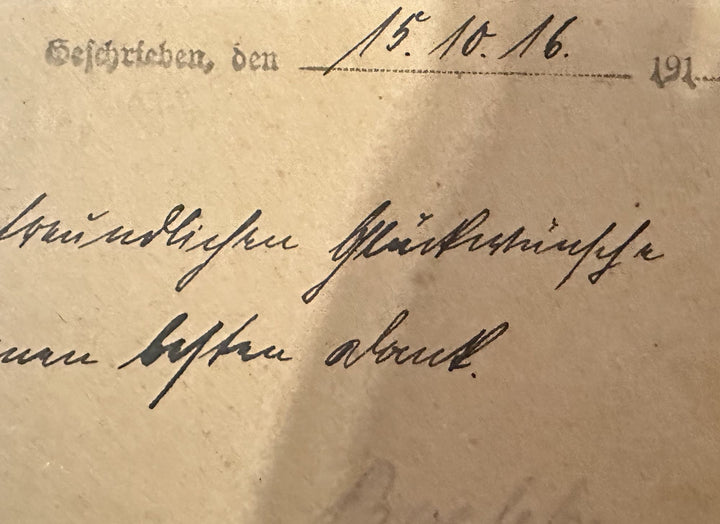 Geschrieben, den 15. 10. 16. 191
freundlichen Glückwünsche
nen besten Dank.